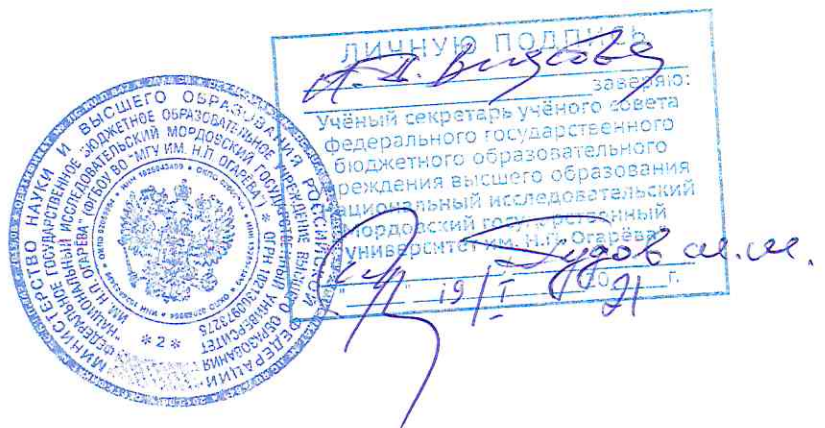 ЛИЧНУЮ ПОДПИСЬ
заверяю:
Учёный секретарь учёного совета
федерального государственного
бюджетного образовательного
учреждения высшего образования
национальный исследовательский
Мордовский государственный
университет им. Н.П. Огарёва
Гудов м.м.
" 19 " I 20 21 г.
МИНИСТЕРСТВО НАУКИ И ВЫСШЕГО ОБРАЗОВАНИЯ РОССИЙСКОЙ ФЕДЕРАЦИИ
ФЕДЕРАЛЬНОЕ ГОСУДАРСТВЕННОЕ БЮДЖЕТНОЕ ОБРАЗОВАТЕЛЬНОЕ УЧРЕЖДЕНИЕ ВЫСШЕГО ОБРАЗОВАНИЯ
"НАЦИОНАЛЬНЫЙ ИССЛЕДОВАТЕЛЬСКИЙ МОРДОВСКИЙ ГОСУДАРСТВЕННЫЙ УНИВЕРСИТЕТ
ИМ. Н.П. ОГАРЁВА" (ФГБОУ ВО "МГУ ИМ. Н.П. ОГАРЁВА")
* 2 *